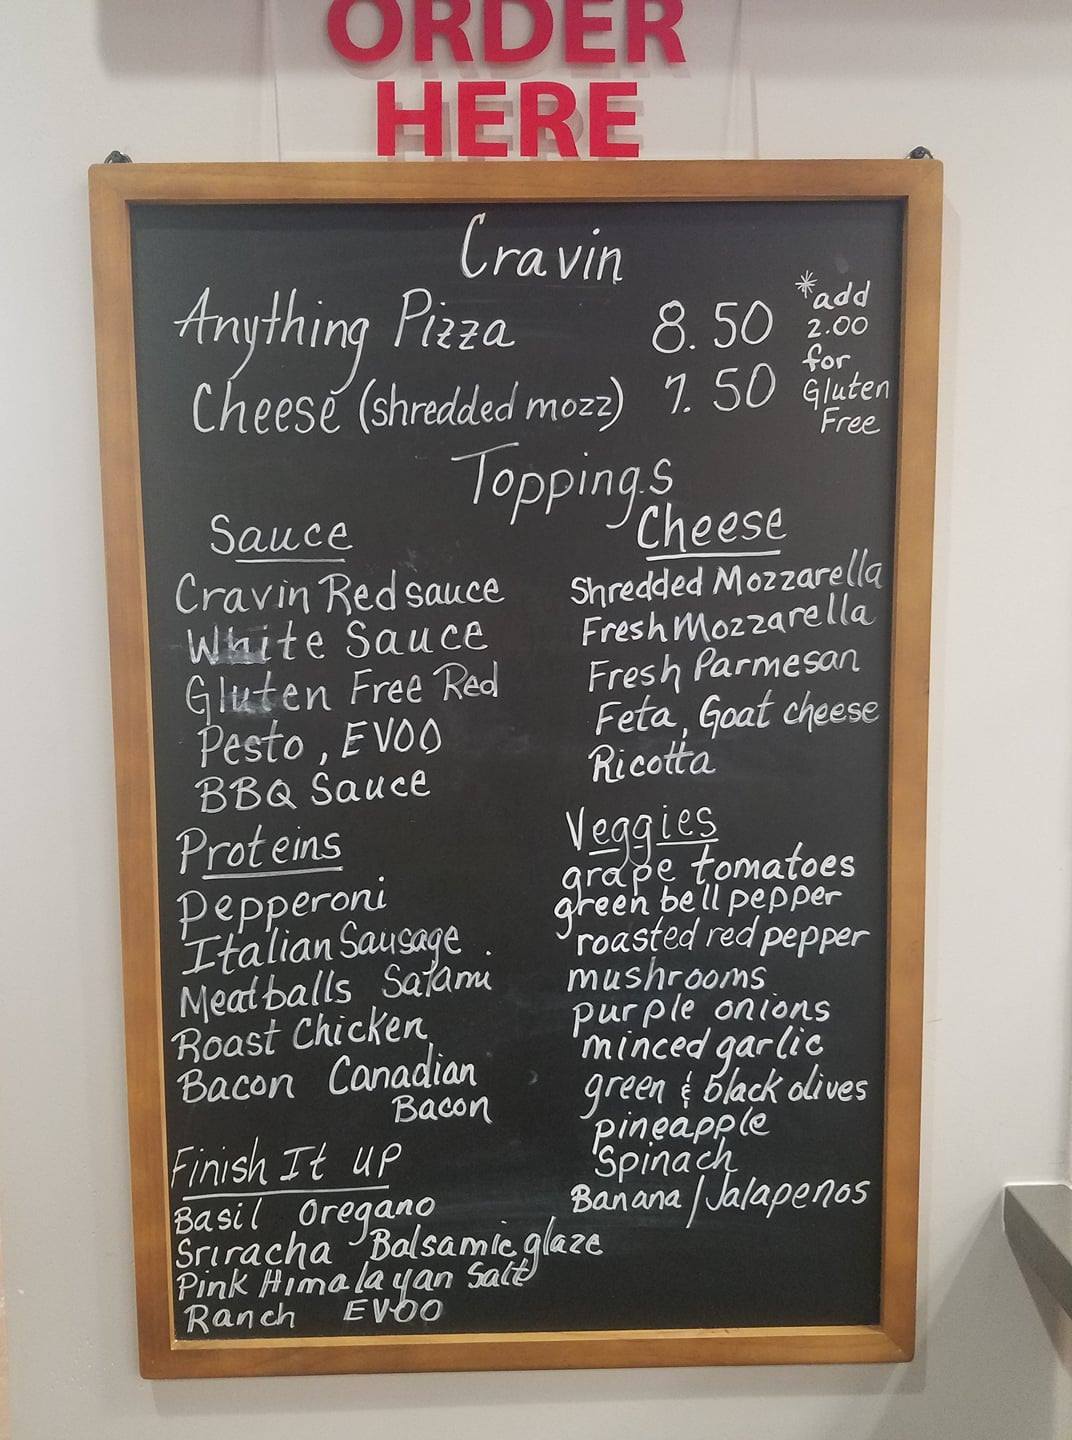 ORDER
HERE
Cravin
Anything Pizza 8.50
Cheese (shredded mozz) 7.50
*add
2.00
for
Gluten
Free
Toppings
Sauce
Cravin Red sauce
White Sauce
Gluten Free Red
Pesto, EVOO
BBQ Sauce
Proteins
Pepperoni
Italian Sausage
Meatballs Salami
Roast Chicken
Bacon Canadian
Bacon
Finish It up
Basil Oregano
Sriracha Balsamic glaze
Pink Himalayan Salt
Ranch EVOO
Cheese
Shredded Mozzarella
Fresh Mozzarella
Fresh Parmesan
Feta, Goat cheese
Ricotta
Veggies
grape tomatoes
green bell pepper
roasted red pepper
mushrooms
purple onions
minced garlic
green & black olives
pineapple
Spinach
Banana/Jalapenos